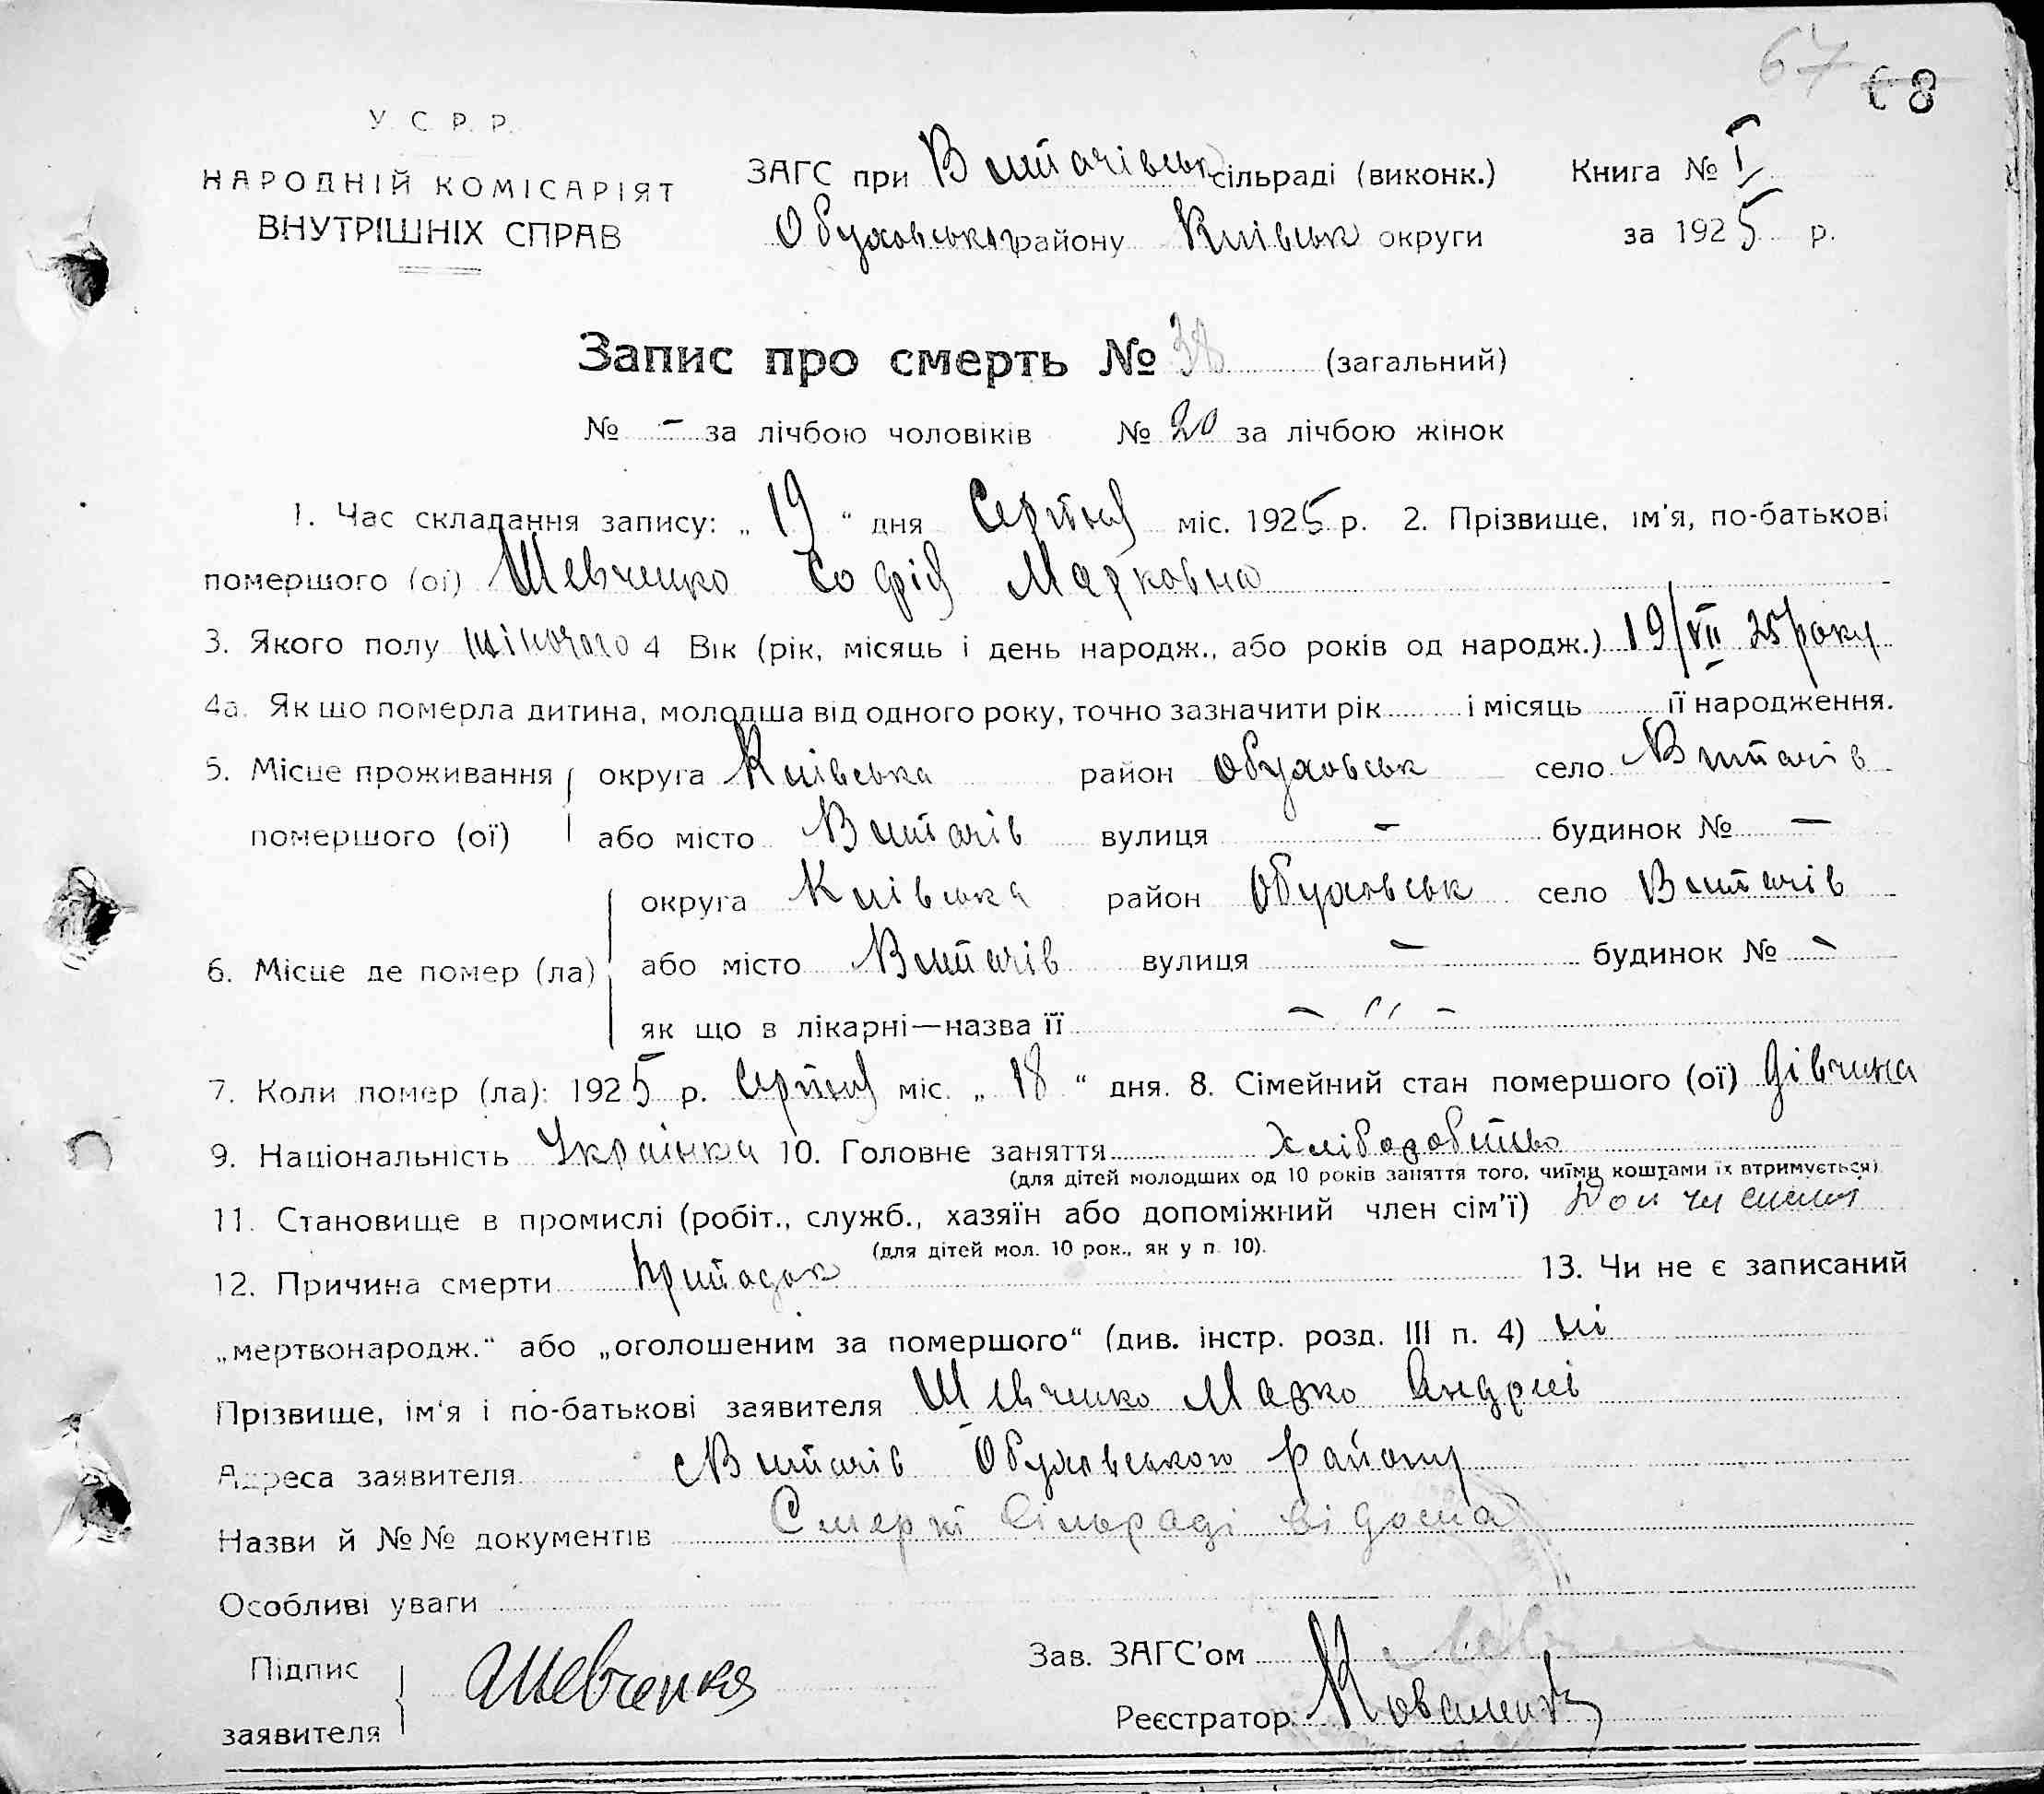 67 68
У. С. Р. Р.
НАРОДНІЙ КОМІСАРІЯТ
ВНУТРІШНІХ СПРАВ
ЗАГС при Витачівськ сільраді (виконк.) Книга № I
Обуховськ району Київськ округи за 1925 р.
Запис про смерть № 38 (загальний)
№ - за лічбою чоловіків № 20 за лічбою жінок
1. Час складання запису: „19“ дня Серпня міс. 1925 р. 2. Прізвище, ім'я, по-батькові
помершого (ої) Шевченко Софія Марковна
3. Якого полу жіночого 4 Вік (рік, місяць і день народж., або років од народж.) 19/VII 25 року
4а. Як що померла дитина, молодша від одного року, точно зазначити рік і місяць її народження.
5. Місце проживання округа Київська район Обуховськ село Витачів
помершого (ої) або місто Витачів вулиця - будинок № —
округа Київська район Обуховськ село Витачів
6. Місце де помер (ла) або місто Витачів вулиця - будинок № -
як що в лікарні—назва її - " -
7. Коли помер (ла): 1925 р. Серпня міс. „18“ дня. 8. Сімейний стан помершого (ої) дівчина
9. Національність Українка 10. Головне заняття Хліборобство
(для дітей молодших од 10 років заняття того, чиїми коштами їх втримується)
11. Становище в промислі (робіт., служб., хазяїн або допоміжний член сім'ї)
(для дітей мол. 10 рок., як у п. 10).
12. Причина смерти Припадок 13. Чи не є записаний
„мертвонародж.“ або „оголошеним за помершого“ (див. інстр. розд. III п. 4) ні
Прізвище, ім'я і по-батькові заявителя Шевченко Марко Андрієв
Адреса заявителя с Витачів Обуховського Району
Назви й №№ документів Смерть сільраді відома
Особливі уваги
Підпис Шевченко Зав. ЗАГС'ом
заявителя Реєстратор Коваленко